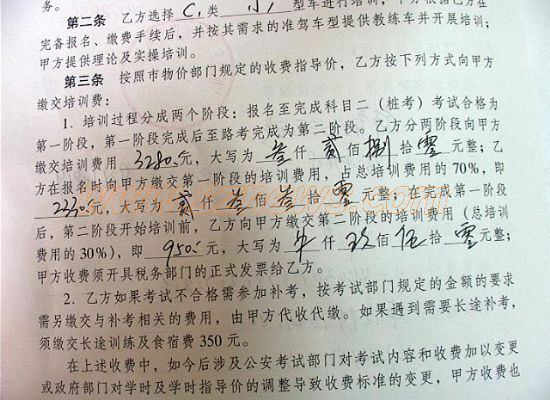 务。
第二条 乙方选择 C1类 小 型车进行培训,甲方根据乙方在
完备报名、缴费手续后,并按其需求的准驾车型提供教练车并开展培训;
甲方提供理论及实操培训。
第三条 按照市物价部门规定的收费指导价,乙方按下列方式向甲方
缴交培训费:
1. 培训过程分成两个阶段:报名至完成科目二(桩考)考试合格为
第一阶段,第一阶段完成后至路考完成为第二阶段。乙方分两阶段向甲方
缴交培训费用 3280元,大写为 叁 仟 贰 佰 捌 拾 零 元整;乙
方在报名时向甲方缴交第一阶段的培训费用,占总培训费用的70%,即
2330元,大写为 贰 仟 叁 佰 叁 拾 零 元整;在完成第一阶段
后,第二阶段开始培训前,乙方向甲方缴交第二阶段的培训费用(总培训
费用的30%),即 950元,大写为 仟 玖 佰 伍 拾 零 元整;
甲方收费须开具税务部门的正式发票给乙方。
2. 乙方如果考试不合格需参加补考,按考试部门规定的金额的要求
需另缴交与补考相关的费用,由甲方代收代缴。如果遇到需要长途补考,
须缴交长途训练及食宿费350元。
在上述收费中,如今后涉及公安考试部门对考试内容和收费加以变更
或政府部门对学时及学时指导价的调整导致收费标准的变更,甲方收费也